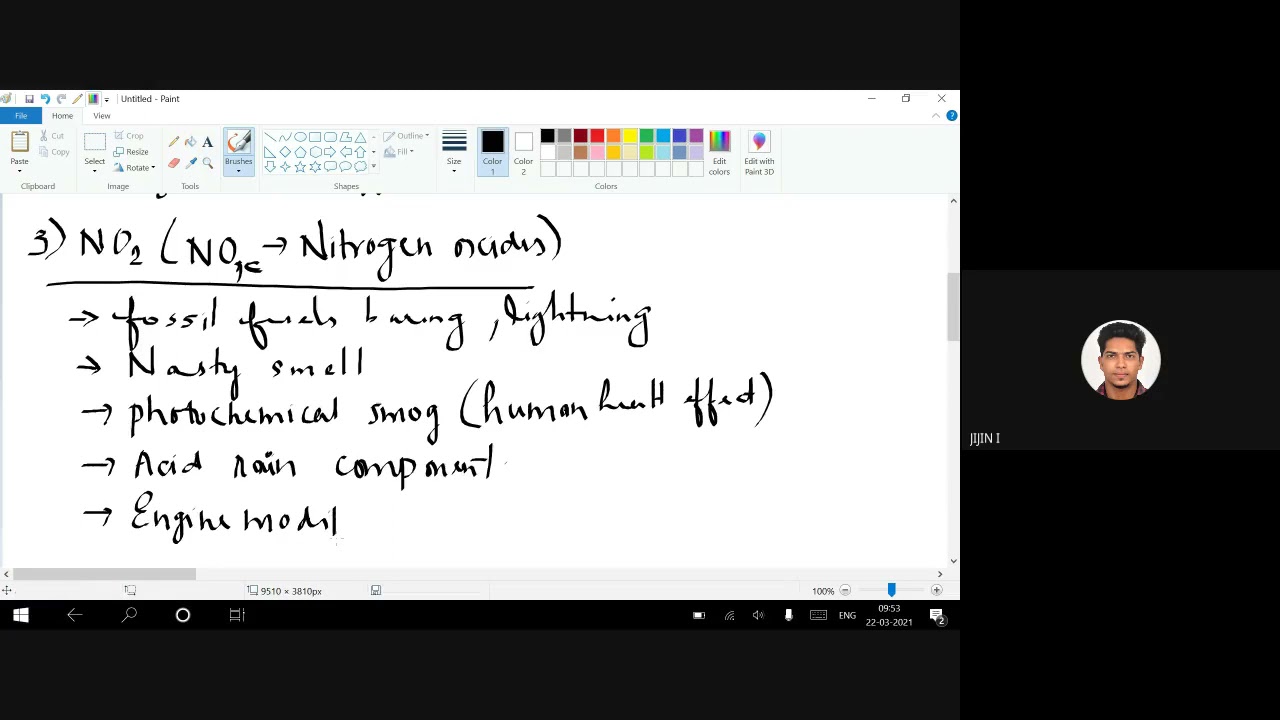 Untitled - Paint
File Home View
Cut
Copy
Paste
Clipboard
Crop
Resize
Rotate
Select
Image
Tools
Brushes
Outline
Fill
Shapes
Size
Color 1
Color 2
Edit colors
Edit with Paint 3D
Colors
3) NO2 (NOx → Nitrogen oxides)
→ fossil fuels buring, lightning
→ Nasty smell
→ photochemical smog (human healt effect)
→ Acid rain component
→ Engine modif
9510 × 3810px
100%
ENG
09:53
22-03-2021
2
JIJIN I